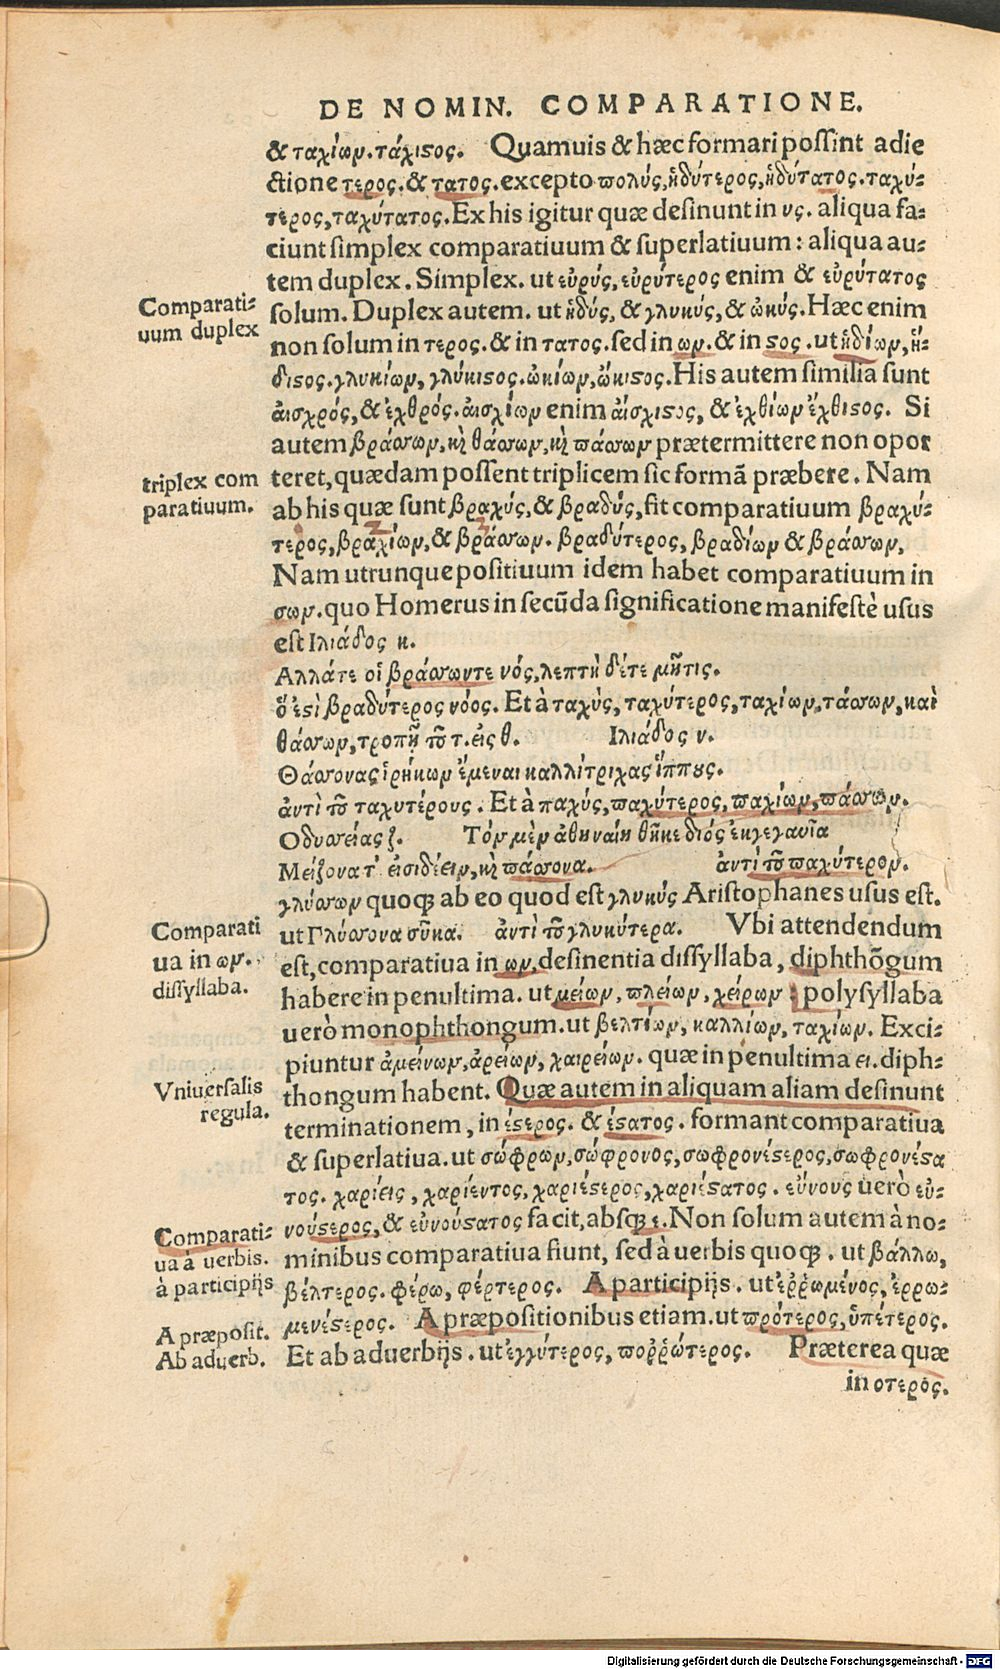 DE NOMIN. COMPARATIONE.
& ταχίων. τάχιςος. Quamuis & hæc formari possint adie
ctione τερος. & τατος. excepto πολύς, ἡδύτερος, ἡδύτατος. ταχύ-
τερος, ταχύτατος. Ex his igitur quæ desinunt in υς. aliqua fa-
ciunt simplex comparatiuum & superlatiuum: aliqua au-
tem duplex. Simplex. ut εὐρύς, εὐρύτερος enim & εὐρύτατος
Comparati-
uum duplex
solum. Duplex autem. ut ἡδύς, & γλυκύς, & ὠκύς. Hæc enim
non solum in τερος. & in τατος. sed in ων. & in ςος. ut ἡδίων, ἥ-
διςος. γλυκίων, γλύκιςος. ὠκίων, ὤκιςος. His autem similia sunt
ἀισχρός, & ἐχθρός. ἀισχίων enim ἀίσχιςος, & ἐχθίων ἔχθιςος. Si
autem βράσσων, κὴ θάσσων, κὴ πάσσων prætermittere non opor
triplex com
paratiuum.
teret, quædam possent triplicem sic formã præbere. Nam
ab his quæ sunt βραχύς, & βραδύς, fit comparatiuum βραχύ-
τερος, βραχίων, & βράσσων. βραδύτερος, βραδίων & βράσσων,
Nam utrunque positiuum idem habet comparatiuum in
σων. quo Homerus in secũda significatione manifestè usus
est Ιλιάδος κ.
Αλλάτε οἱ βράσσωντε νός, λεπτὴ δέτε μῆτις.
ὅ ἐςὶ βραδύτερος νόος. Et à ταχὺς, ταχύτερος, ταχίων, τάσσων, καὶ
θάσσων, τροπῇ τοῦ τ. εἰς θ. Ιλιάδος ν.
Θάσσονας ἰρήκων ἔμεναι καλλίτριχας ἵππους.
ἀντὶ τοῦ ταχυτέρους. Et à παχύς, παχύτερος, παχίων, πάσσων.
Οδυσσείας ξ. Τὸν μὲν ἀθηναίη θῆκε διός ἐκγεγαυῖα
Μείζονα τ' εἰσιδέειν, κὴ πάσσονα. ἀντὶ τοῦ παχύτερον.
γλύσσων quoq; ab eo quod est γλυκύς Aristophanes usus est.
Comparati
ua in ων.
dissyllaba.
ut Γλύσσονα σῦκα. ἀντὶ τοῦ γλυκύτερα. Vbi attendendum
est, comparatiua in ων, desinentia dissyllaba, diphthõgum
habere in penultima. ut μείων, πλείων, χείρων: polysyllaba
uerò monophthongum. ut βελτίων, καλλίων, ταχίων. Exci-
piuntur ἀμείνων, ἀρείων, χαιρείων. quæ in penultima ει. diph-
Vniuersalis
regula.
thongum habent. Quæ autem in aliquam aliam desinunt
terminationem, in έςερος. & έςατος. formant comparatiua
& superlatiua. ut σώφρων, σώφρονος, σωφρονέςερος, σωφρονέςα
τος. χαρίεις, χαρίεντος, χαριέςερος, χαριέςατος. εὔνους uerò εὐ-
Comparati-
ua à uerbis.
à participijs
νούςερος, & εὐνούςατος facit, absq; ε. Non solum autem à no-
minibus comparatiua fiunt, sed à uerbis quoq;. ut βάλλω,
βέλτερος. φέρω, φέρτερος. A participijs. ut ἐῤῥωμένος, ἐρρω-
A præposit.
Ab aduerb.
μενέςερος. A præpositionibus etiam. ut πρότερος, ὑπέτερος.
Et ab aduerbijs. ut ἐγγύτερος, ποῤῥώτερος. Præterea quæ
in οτερος.
Digitalisierung gefördert durch die Deutsche Forschungsgemeinschaft - DFG